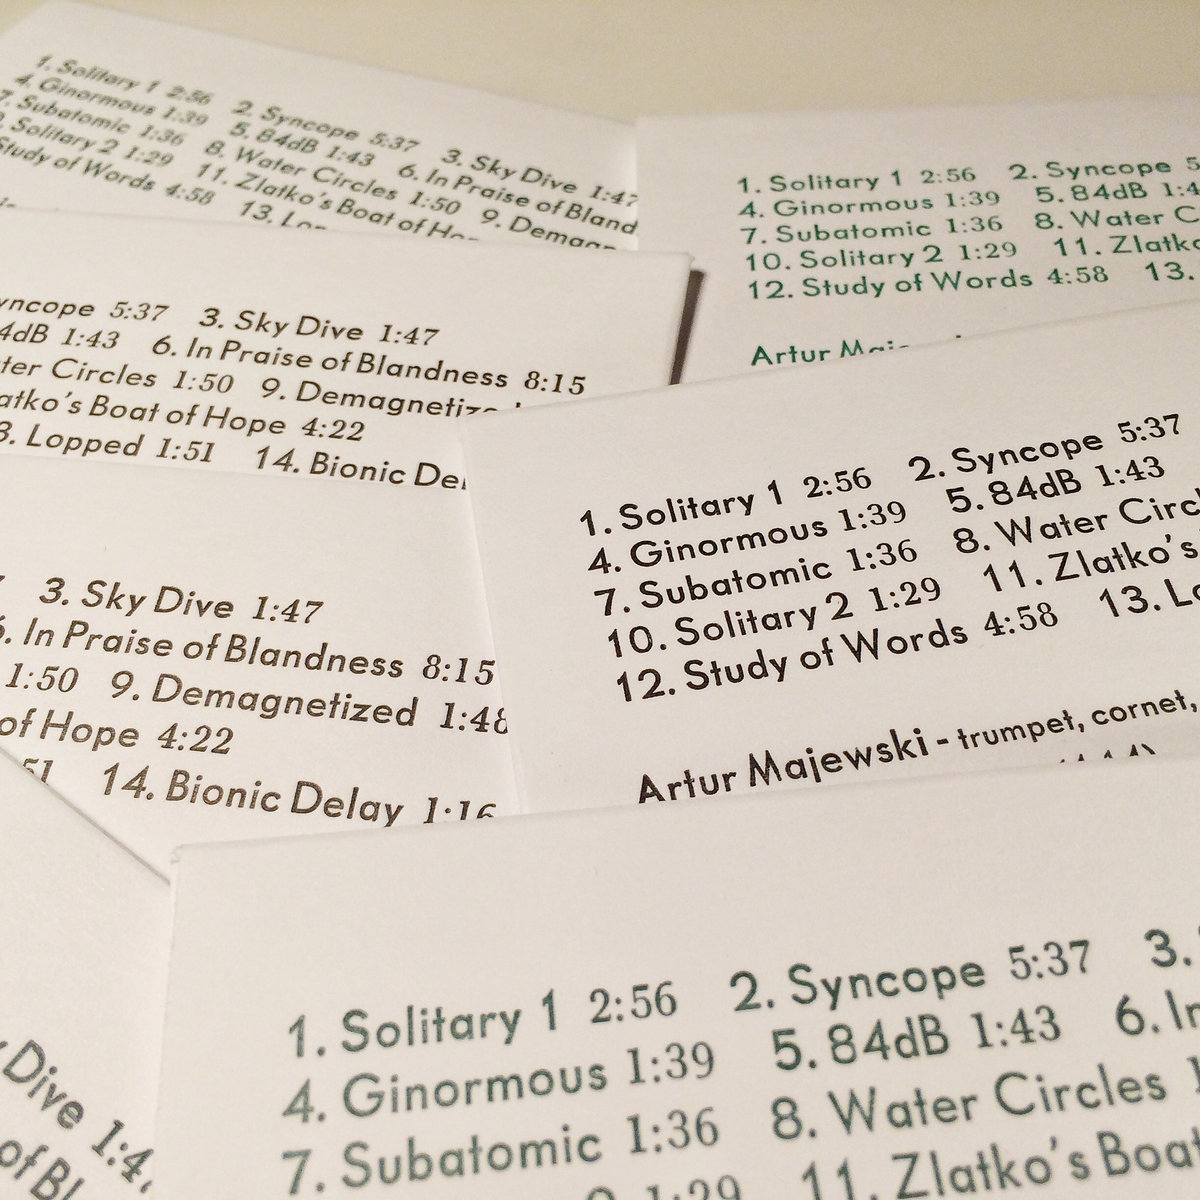 1. Solitary 1 2:56 2. Syncope 5:37 3. Sky Dive 1:47
4. Ginormous 1:39 5. 84dB 1:43 6. In Praise of Bland
7. Subatomic 1:36 8. Water Circles 1:50 9. Demagn
Solitary 2 1:29 11. Zlatko's Boat of Ho
Study of Words 4:58 13. Lo
1. Solitary 1 2:56 2. Syncope 5
4. Ginormous 1:39 5. 84dB 1:4
7. Subatomic 1:36 8. Water C
10. Solitary 2 1:29 11. Zlatko
12. Study of Words 4:58 13.
Artur Maje
yncope 5:37 3. Sky Dive 1:47
4dB 1:43 6. In Praise of Blandness 8:15
ter Circles 1:50 9. Demagnetiz
atko's Boat of Hope 4:22
3. Lopped 1:51 14. Bionic De
1. Solitary 1 2:56 2. Syncope 5:37
4. Ginormous 1:39 5. 84dB 1:43
7. Subatomic 1:36 8. Water Circ
10. Solitary 2 1:29 11. Zlatko's
12. Study of Words 4:58 13. Lo
Artur Majewski - trumpet, cornet,
3. Sky Dive 1:47
6. In Praise of Blandness 8:15
1:50 9. Demagnetized 1:48
of Hope 4:22
51 14. Bionic Delay 1:16
1. Solitary 1 2:56 2. Syncope 5:37 3.
4. Ginormous 1:39 5. 84dB 1:43 6. In
7. Subatomic 1:36 8. Water Circles 1
1:29 11. Zlatko's Boat
Dive 1:4
of Bl